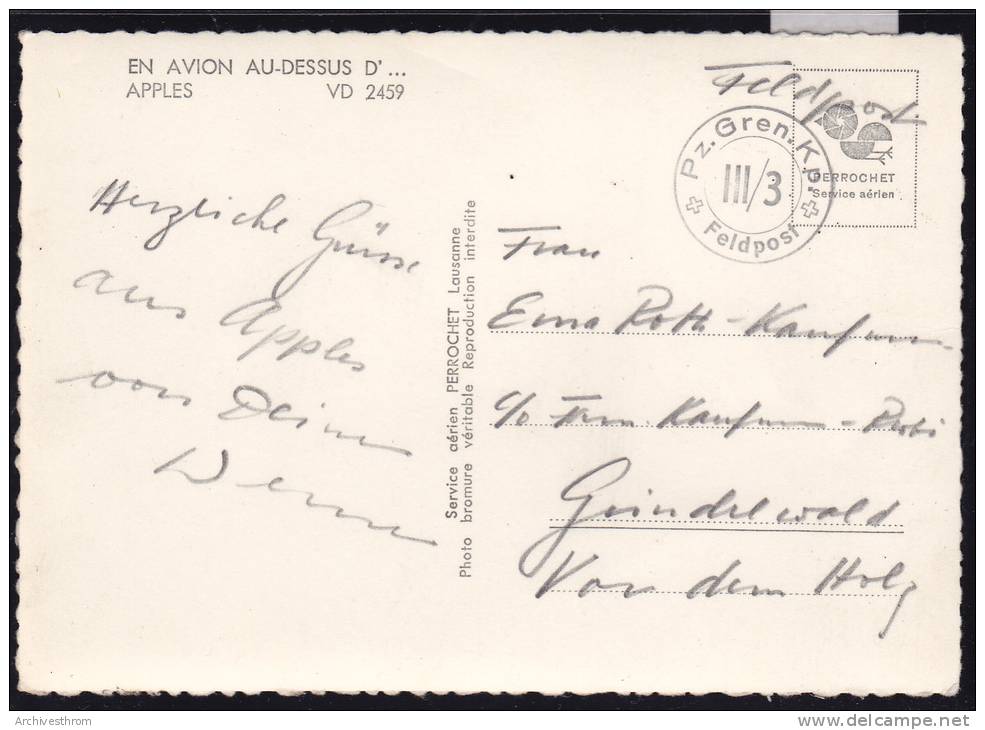 EN AVION AU-DESSUS D' ...
APPLES VD 2459
Feldpost
Pz. Gren. Kp.
III/3
Feldpost
PERROCHET
Service aérien
Herzliche Grüsse
aus Apples
von Deinem
Werner
Service aérien PERROCHET Lausanne
Photo bromure véritable Reproduction interdite
Frau
Erna Roth-Kaufmann
c/o Fam. Kaufmann-
Grindelwald
Vor dem Holz
Archivesthrom
delcampe.net